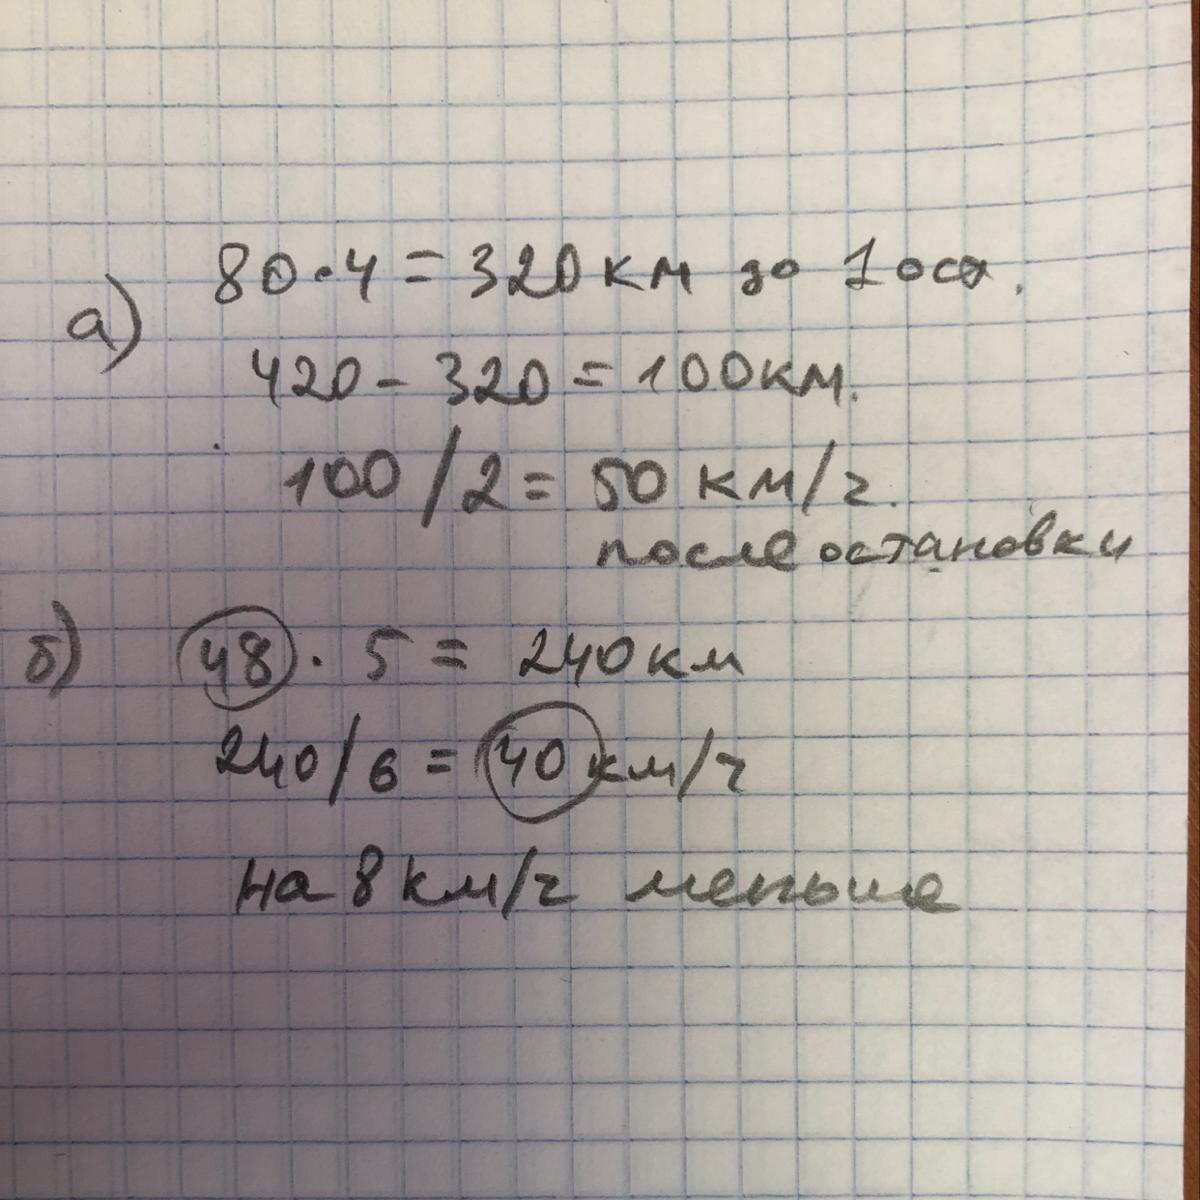 а) 80·4 = 320 км до 1 ост.
420 - 320 = 100 км.
100 / 2 = 50 км/ч.
после остановки
б) 48 · 5 = 240 км
240 / 6 = 40 км/ч
на 8 км/ч меньше